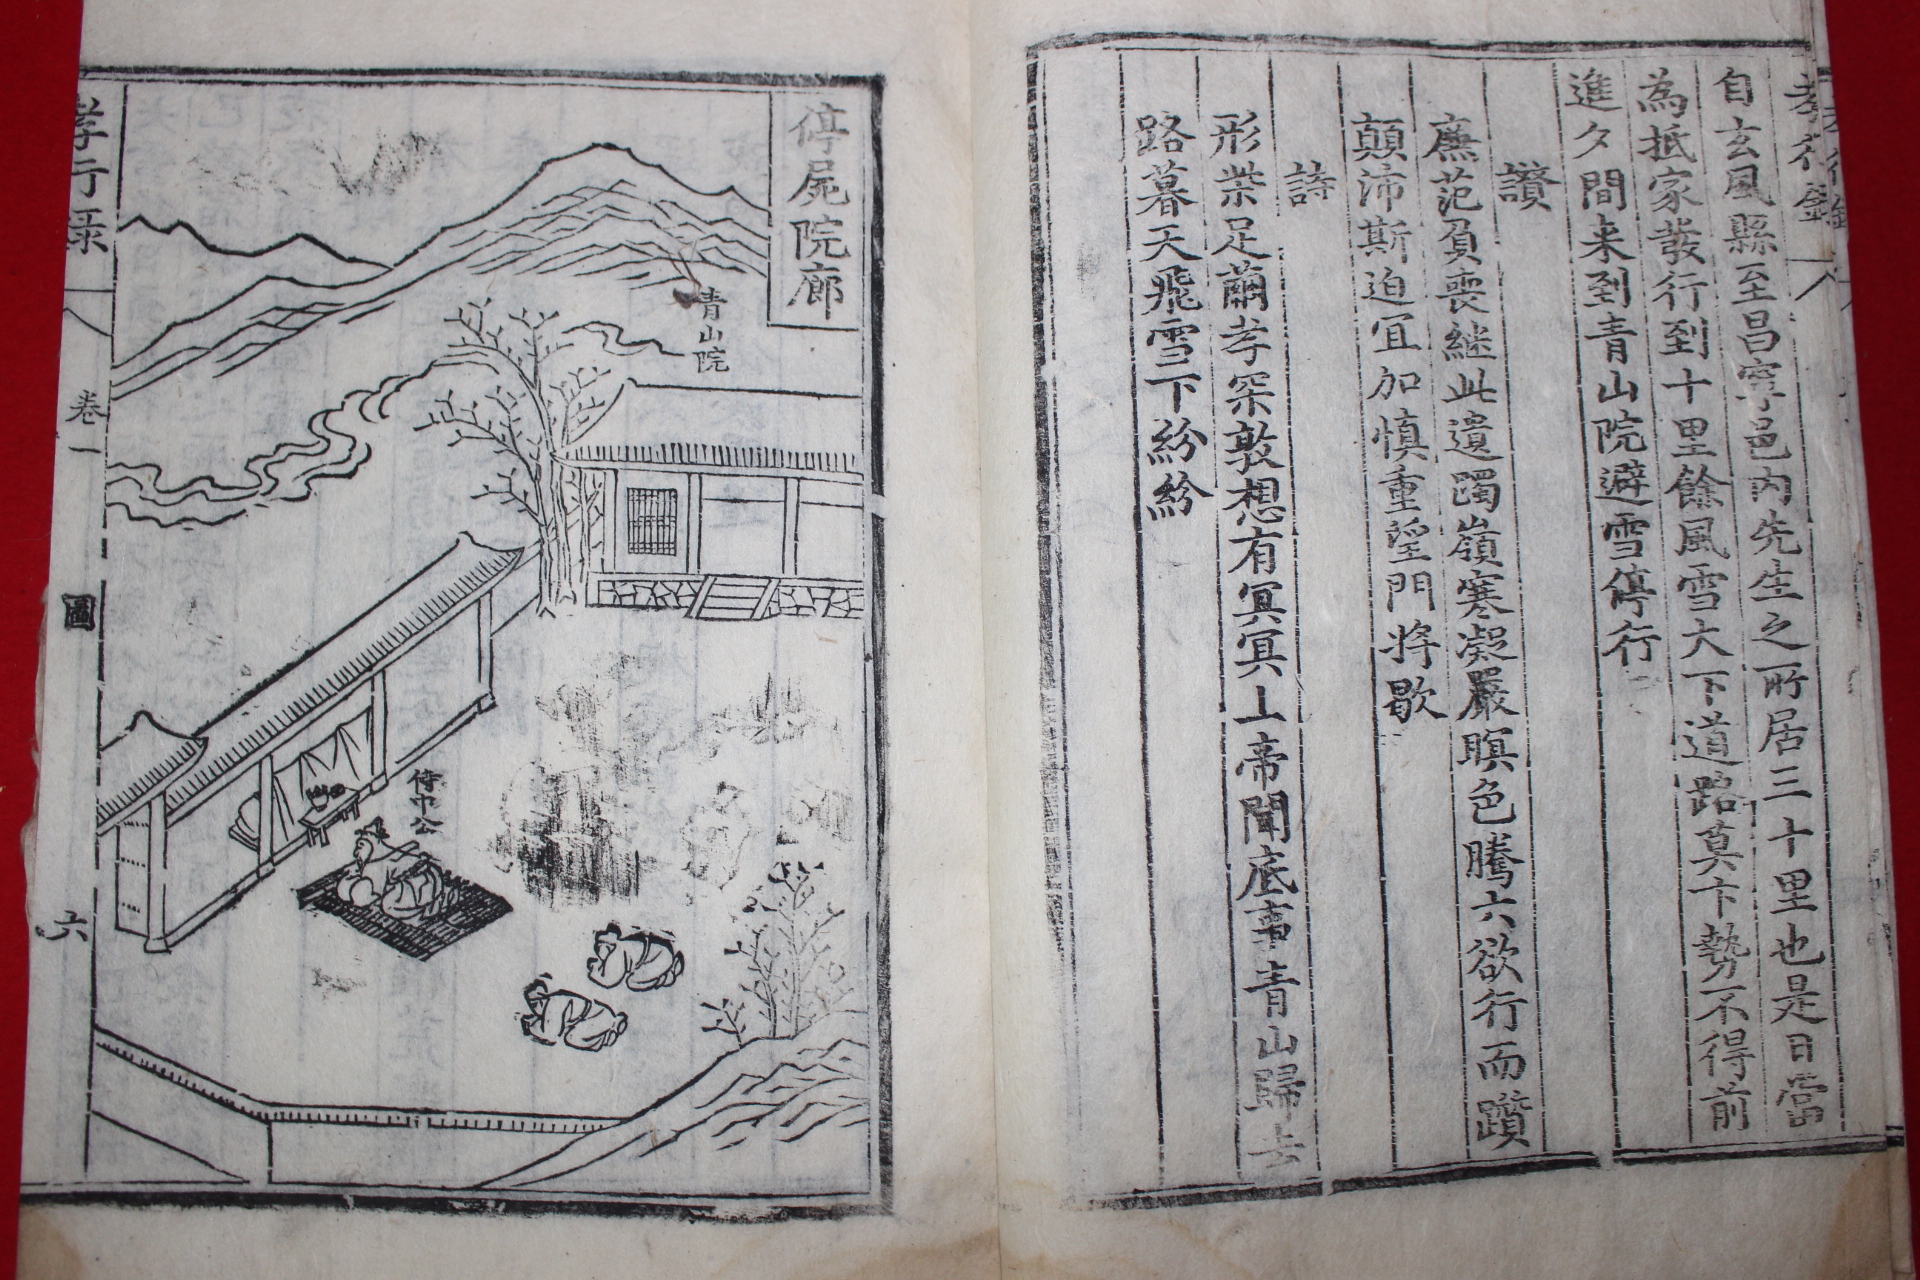 孝行錄
自玄風縣至昌寧邑內先生之所居三十里也是日當
為抵家發行到十里餘風雪大下道路莫卞勢不得前
進夕間来到青山院避雪停行
讚
廡范負喪継此遺躅嶺寒凝嚴暝色騰六欲行而躓
顛沛斯迫冝加慎重瑩門將歇
詩
形柴足繭孝罙敦想有冥冥上帝聞底事青山歸去
路暮天飛雪下紛紛
停屍院廊
青山院
侍中公
孝行录
卷一
圖
六